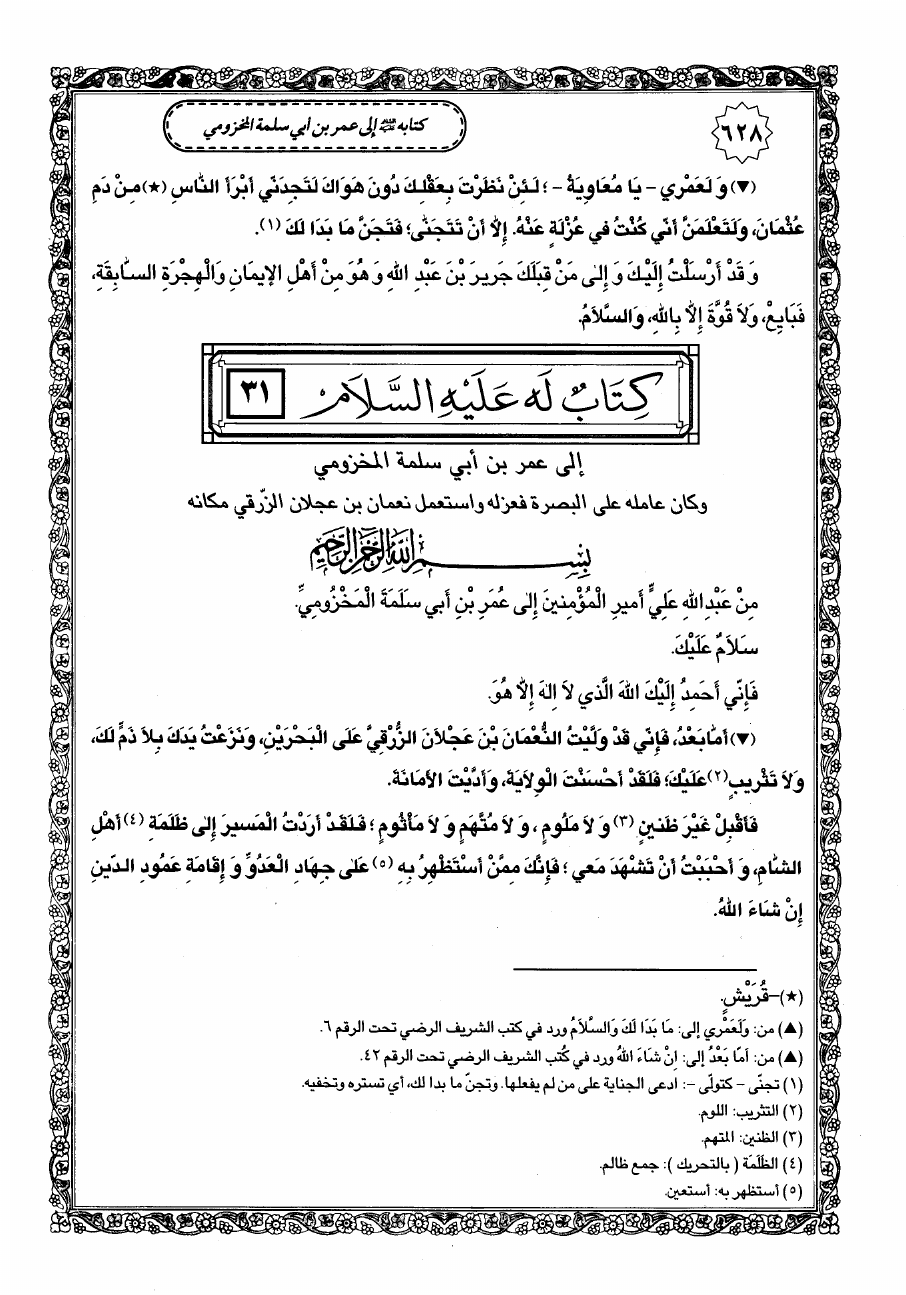 ٦٢٨
كتابه عليه السلام إلى عمر بن أبي سلمة المخزومي
(▼) وَ لَعَمْري - يَا مُعَاوِيَةُ - ؛ لَئِنْ نَظَرْتَ بِعَقْلِكَ دُونَ هَوَاكَ لَتَجِدَنّي أَبْرَأَ النَّاسِ (★) مِنْ دَمِ
عُثْمَانَ، وَلَتَعْلَمَنَّ أَنّي كُنْتُ في عُزْلَةٍ عَنْهُ. إِلاَّ أَنْ تَتَجَنّٰى؛ فَتَجَنَّ مَا بَدَا لَكَ (١).
وَ قَدْ أَرْسَلْتُ إِلَيْكَ وَ إِلىٰ مَنْ قِبَلَكَ جَريرَ بْنَ عَبْدِ اللهِ وَ هُوَ مِنْ أَهْلِ الإيمَانِ وَالْهِجْرَةِ السَّابِقَةِ،
فَبَايِعْ، وَلاَ قُوَّةَ إِلاَّ بِاللهِ، وَالسَّلاَمُ.
كِتَابٌ لَه عَلَيْهِ السَّلاَم ٣١
إلى عمر بن أبي سلمة المخزومي
وكان عامله على البصرة فعزله واستعمل نعمان بن عجلان الزّرقي مكانه
بِسْمِ اللهِ الرَّحْمٰنِ الرَّحيمِ
مِنْ عَبْدِ اللهِ عَلِيٍّ أَميرِ الْمُؤْمِنينَ إِلىٰ عُمَرَ بْنِ أَبي سَلَمَةَ الْمَخْزُومِيِّ.
سَلاَمٌ عَلَيْكَ.
فَإِنّي أَحْمَدُ إِلَيْكَ اللهَ الَّذي لاَ إِلٰهَ إِلاَّ هُوَ.
(▼) أَمَّا بَعْدُ، فَإِنّي قَدْ وَلَّيْتُ النُّعْمَانَ بْنَ عَجْلاَنَ الزُّرَقِيَّ عَلَى الْبَحْرَيْنِ، وَنَزَعْتُ يَدَكَ بِلاَ ذَمٍّ لَكَ،
وَلاَ تَثْريبٍ (٢) عَلَيْكَ؛ فَلَقَدْ أَحْسَنْتَ الْوِلاَيَةَ، وَأَدَّيْتَ الأَمَانَةَ.
فَأَقْبِلْ غَيْرَ ظَنينٍ (٣) وَ لاَ مَلُومٍ، وَ لاَ مُتَّهَمٍ وَ لاَ مَأْثُومٍ؛ فَلَقَدْ أَرَدْتُ الْمَسيرَ إِلىٰ ظَلَمَةِ (٤) أَهْلِ
الشَّامِ، وَ أَحْبَبْتُ أَنْ تَشْهَدَ مَعي؛ فَإِنَّكَ مِمَّنْ أَسْتَظْهِرُ بِهِ (٥) عَلىٰ جِهَادِ الْعَدُوِّ وَ إِقَامَةِ عَمُودِ الدّينِ
إِنْ شَاءَ اللهُ.
(★)-قُرَيْشٍ.
(▲) من: وَلَعَمْري إلى: مَا بَدَا لَكَ وَالسَّلاَمُ ورد في كتب الشريف الرضي تحت الرقم ٦.
(▲) من: أَمَّا بَعْدُ إلى: إِنْ شَاءَ اللهُ ورد في كُتب الشريف الرضي تحت الرقم ٤٢.
(١) تجنّى - كتولّى -: ادعى الجناية على من لم يفعلها. وتجنّ ما بدا لك، أي تستره وتخفيه.
(٢) التثريب: اللوم.
(٣) الظنين: المتهم.
(٤) الظَلَمَة ( بالتحريك ): جمع ظالم.
(٥) أستظهر به: أستعين.